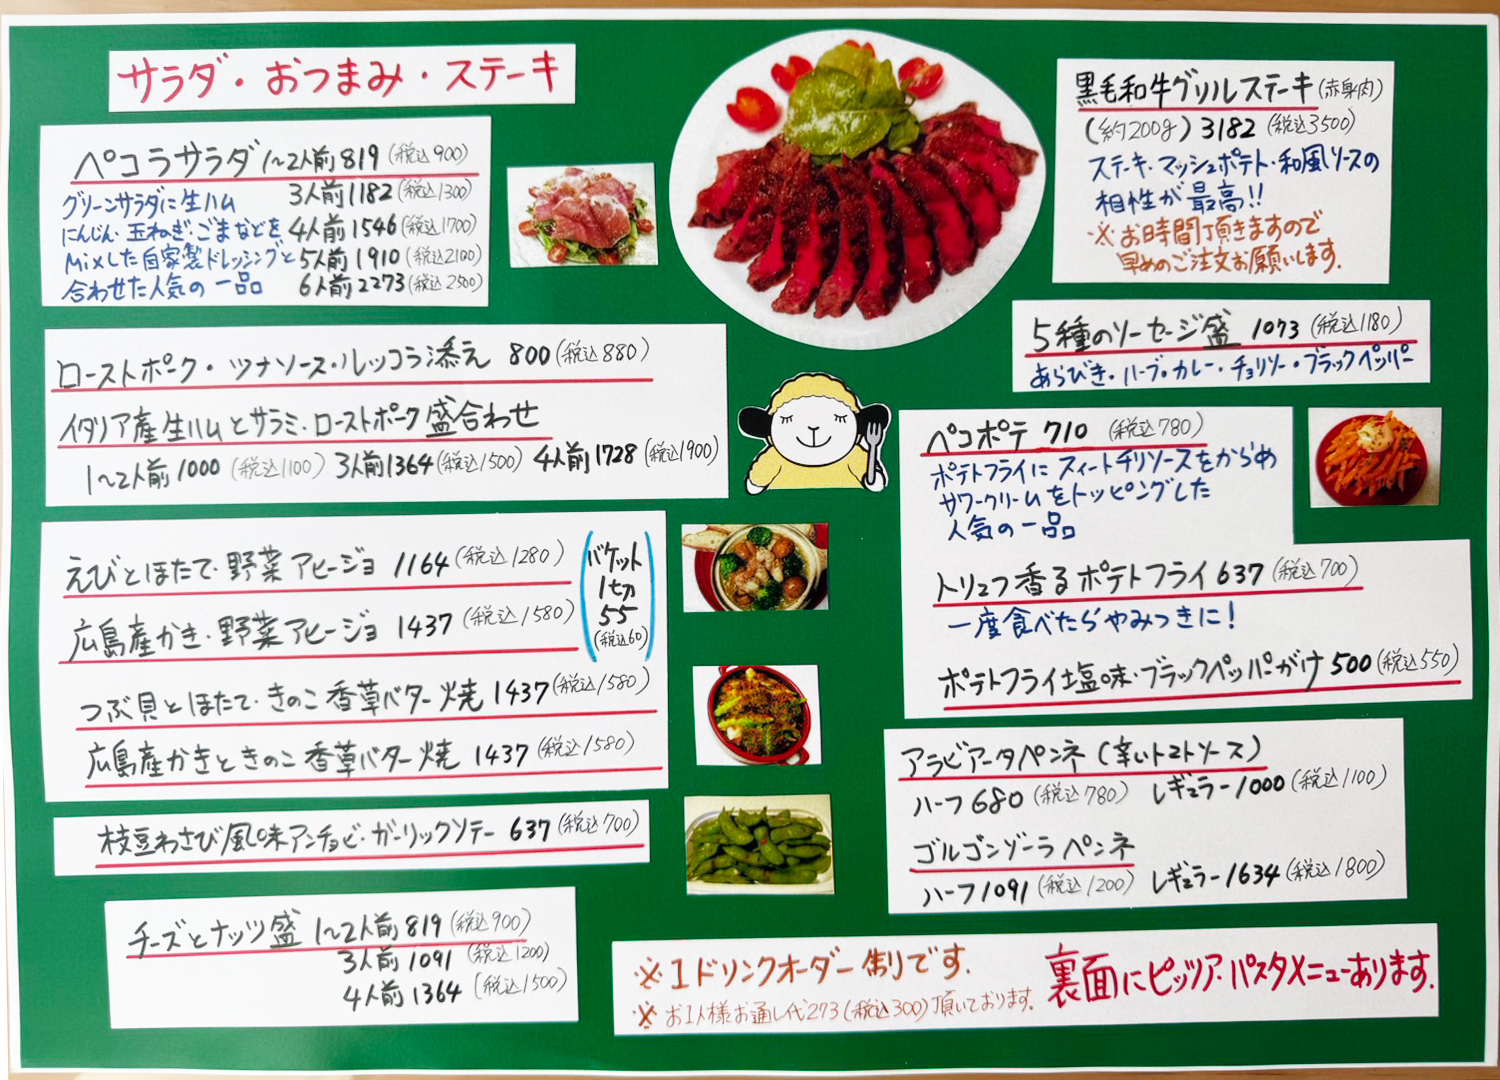 サラダ・おつまみ・ステーキ
ペコラサラダ 1〜2人前 819 (税込900)
3人前 1182 (税込1300)
4人前 1546 (税込1700)
5人前 1910 (税込2100)
6人前 2273 (税込2500)
グリーンサラダに生ハム
にんじん・玉ねぎ・ごまなどを
Mixした自家製ドレッシングと
合わせた人気の一品
ローストポーク・ツナソース・ルッコラ添え 800 (税込880)
イタリア産生ハムとサラミ・ローストポーク盛合わせ
1〜2人前 1000 (税込1100) 3人前 1364 (税込1500) 4人前 1728 (税込1900)
えびとほたて・野菜アヒージョ 1164 (税込1280)
広島産かき・野菜アヒージョ 1437 (税込1580)
バケット
1切
55
(税込60)
つぶ貝とほたて・きのこ香草バター焼 1437 (税込1580)
広島産かきときのこ香草バター焼 1437 (税込1580)
枝豆わさび風味アンチョビ・ガーリックソテー 637 (税込700)
チーズとナッツ盛 1〜2人前 819 (税込900)
3人前 1091 (税込1200)
4人前 1364 (税込1500)
黒毛和牛グリルステーキ (赤身肉)
(約200g) 3182 (税込3500)
ステーキ・マッシュポテト・和風ソースの
相性が最高!!
※お時間頂きますので
早めのご注文お願いします.
5種のソーセージ盛 1073 (税込1180)
あらびき・ハーブ・カレー・チョリソー・ブラックペッパー
ペコポテ 710 (税込780)
ポテトフライにスィートチリソースをからめ
サワークリームをトッピングした
人気の一品
トリュフ香るポテトフライ 637 (税込700)
一度食べたらやみつきに!
ポテトフライ塩味・ブラックペッパーがけ 500 (税込550)
アラビアータペンネ (辛いトマトソース)
ハーフ 680 (税込780) レギュラー 1000 (税込1100)
ゴルゴンゾーラペンネ
ハーフ 1091 (税込1200) レギュラー 1634 (税込1800)
※1ドリンクオーダー制です.
※お1人様お通し代273 (税込300) 頂いております.
裏面にピッツア・パスタメニューあります.